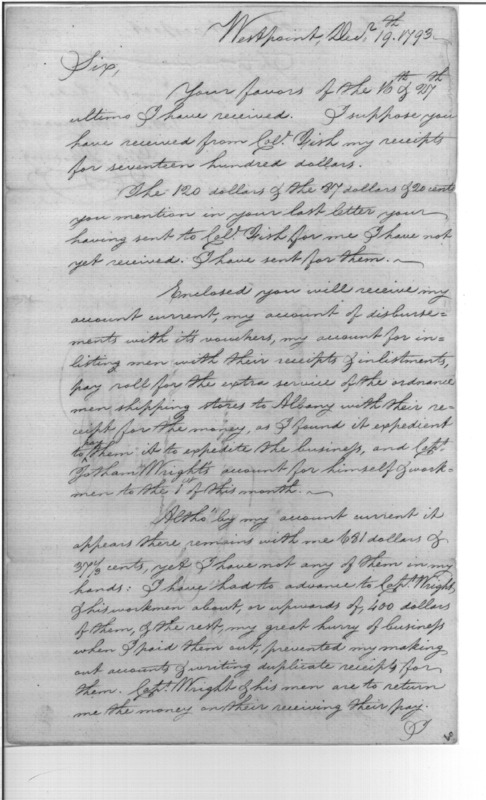 Westpoint, Decr. 19th. 1793.
Sir,
Your favors of the 16th & 27th
ultimo I have received. I suppose you
have received from Colo. Fish my receipts
for seventeen hundred dollars.
The 120 dollars & the 27 dollars & 20 cents
you mention in your last letter your
having sent to Colo. Fish for me I have not
yet received. I have sent for them.
Enclosed you will receive my
account current, my account of disburse=
ments with its vouchers, my account for in=
listing men with their receipts & inlistments,
pay roll for the extra service of the ordnance
men shipping stores to Albany with their re=
ceipt for the money, as I found it expedient
to pay them it to expedite the business, and Capt.
Jotham Wrights account for himself & work=
men to the 1st of this month.
Altho' by my account current it
appears there remains with me 631 dollars &
37 1/3 cents, yet I have not any of them in my
hands: I have had to advance to Capt. Wright,
& his workmen about, or upwards of, 400 dollars
of them, & the rest, my great hurry of business
when I paid them out, prevented my making
out accounts & writing duplicate receipts for
them. Capt. Wright & his men are to return
me the money on their receiving their pay.
I